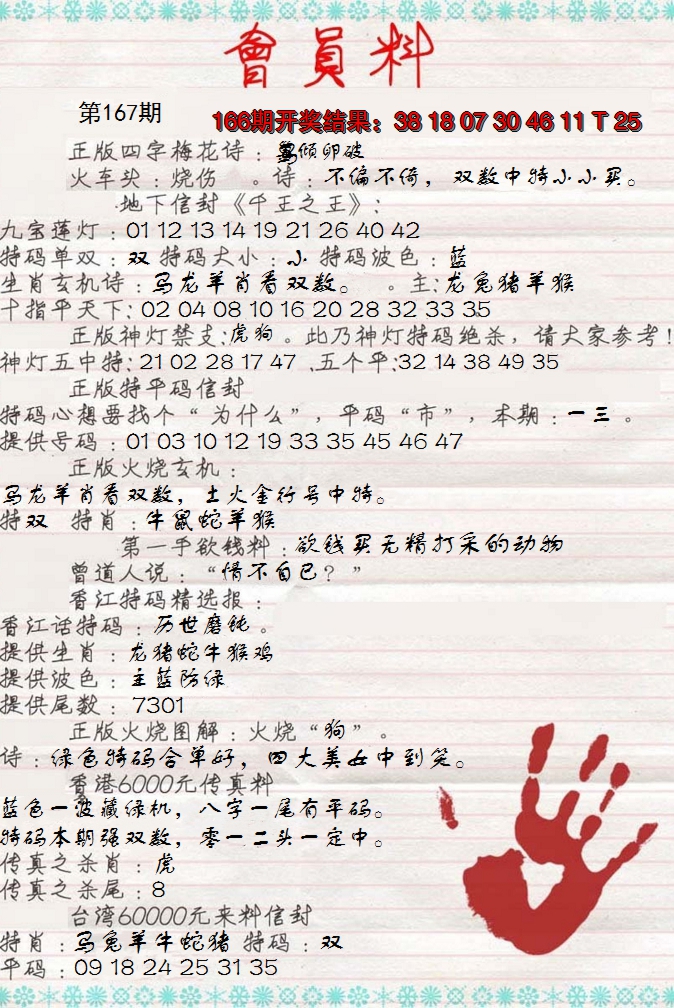 會員料
第167期
166期开奖结果：38 18 07 30 46 11 T 25
正版四字梅花诗：倾卵破
火车头：烧伤 。诗：不偏不倚，双数中特小小买。
地下信封《千王之王》：
九宝莲灯：01 12 13 14 19 21 26 40 42
特码单双：双 特码大小：小 特码波色：蓝
生肖玄机诗：马龙羊肖看双数。 。主：龙兔猪羊猴
十指平天下：02 04 08 10 16 20 28 32 33 35
正版神灯禁支：虎狗。此乃神灯特码绝杀，请大家参考！
神灯五中特：21 02 28 17 47 、五个平：32 14 38 49 35
正版特平码信封
特码心想要找个“为什么”，平码“市”，本期：一三。
提供号码：01 03 10 12 19 33 35 45 46 47
正版火烧玄机：
马龙羊肖看双数，土火金行号中特。
特双 特肖：牛鼠蛇羊猴
第一手欲钱料：欲钱买无精打采的动物
曾道人说：“情不自已？”
香江特码精选报：
香江话特码：历世磨钝。
提供生肖：龙猪蛇牛猴鸡
提供波色：主蓝防绿
提供尾数：7301
正版火烧图解：火烧“狗”。
诗：绿色特码合单好，四大美女中到笑。
香港6000元传真料
蓝色一波藏绿机，八字一尾有平码。
特码本期强双数，零一二头一定中。
传真之杀肖：虎
传真之杀尾：8
台湾60000元来料信封
特肖：马兔羊牛蛇猪 特码：双
平码：09 18 24 25 31 35